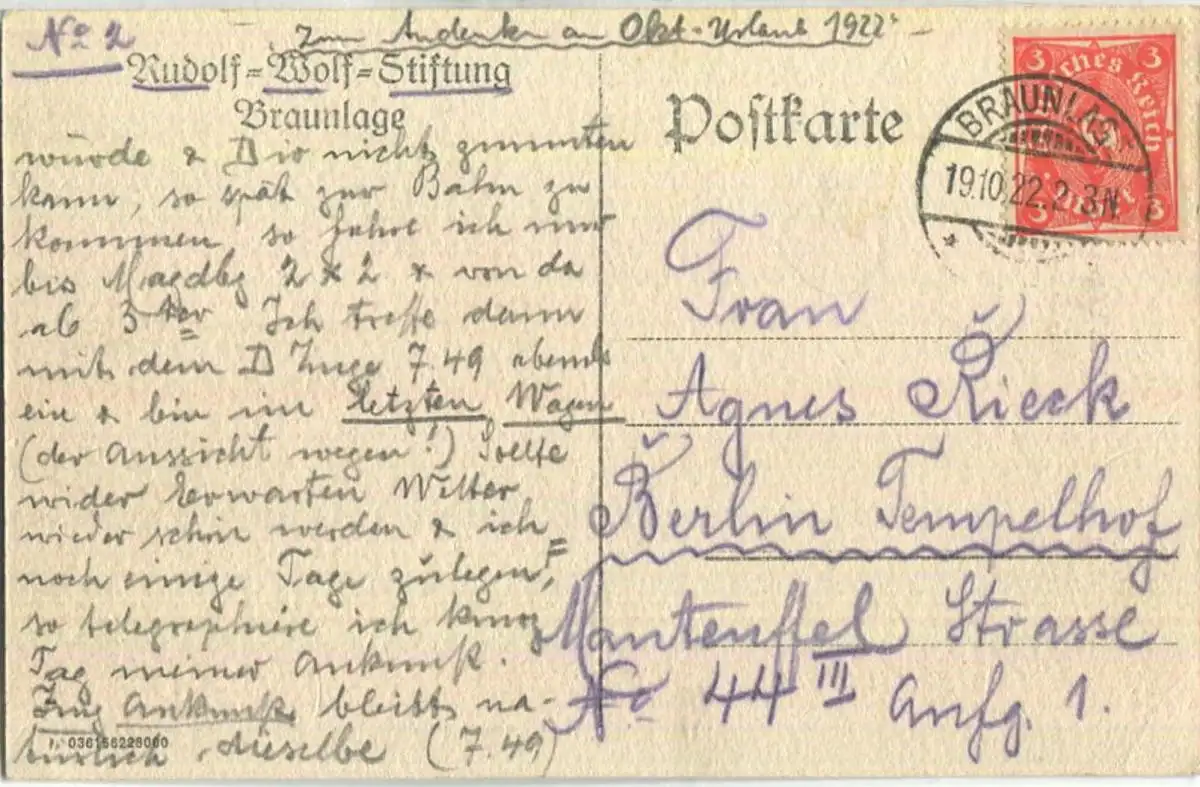 No 2
Zum Andenken an Okt-Urlaub 1922
Rudolf=Wolf=Stiftung
Braunlage
würde & Dir nicht zumuten
kann, so spät zur Bahn zu
kommen, so fahre ich nur
bis Magdbg 2 x 2 & von da
ab 3ter Ich treffe dann
mit dem D Zuge 7.49 abends
ein & bin im letzten Wagen
(der Aussicht wegen!) Sollte
wider Erwarten Wetter
wieder schön werden & ich
noch einige Tage zulegen,
so telegraphiere ich
Tag meiner Ankunft.
Zug Ankunft bleibt na-
türlich dieselbe (7.49)
036156228060
Postkarte
BRAUNLAGE
19.10.22.2-3N
3 3
3 3
Frau
Agnes Rieck
Berlin Tempelhof
Manteuffel Strasse
No 44 III Aufg. 1.